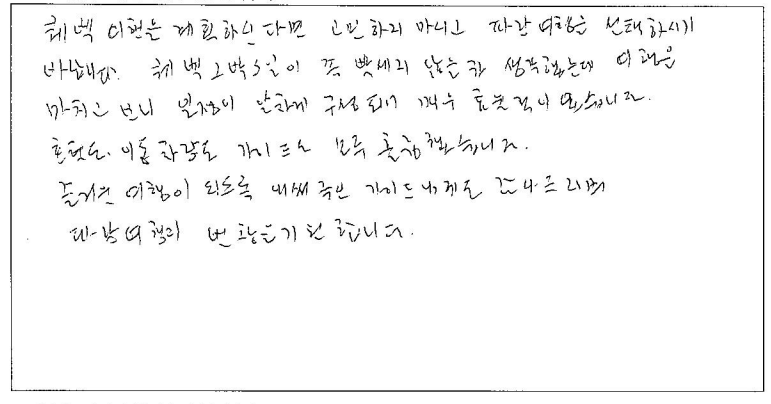 퀘벡 여행을 계획하신다면 고민하지 마시고 파란여행을 선택하시기
바랍니다. 퀘벡 2박3일이 좀 빡세지 않을까 생각했는데 여행을
마치고 보니 일정이 알차게 구성되어 매우 효율적이었습니다.
호텔도, 이동 차량도 가이드도 모두 훌륭했습니다.
즐거운 여행이 되도록 애써주신 가이드님께도 감사드리며
파란여행의 번창을 기원합니다.